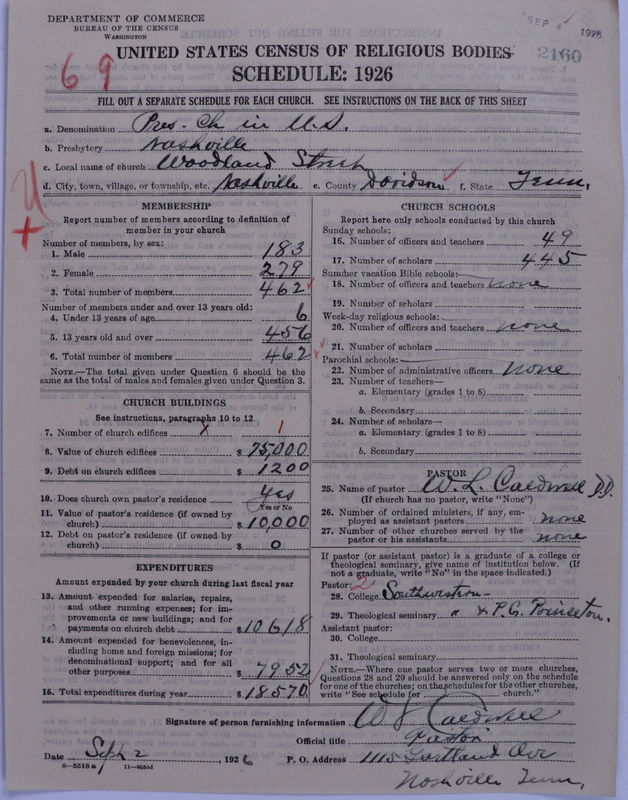 DEPARTMENT OF COMMERCE
BUREAU OF THE CENSUS
WASHINGTON
SEP 4 1926
2160
69
UNITED STATES CENSUS OF RELIGIOUS BODIES
SCHEDULE: 1926
FILL OUT A SEPARATE SCHEDULE FOR EACH CHURCH. SEE INSTRUCTIONS ON THE BACK OF THIS SHEET
a. Denomination Pres. Ch in U.S.
b. Presbytery Nashville
c. Local name of church Woodland Street
d. City, town, village, or township, etc. Nashville e. County Davidson f. State Tenn.
MEMBERSHIP
Report number of members according to definition of member in your church
Number of members, by sex:
1. Male 183
2. Female 279
3. Total number of members 462
Number of members under and over 13 years old:
4. Under 13 years of age 6
5. 13 years old and over 456
6. Total number of members 462
NOTE.—The total given under Question 6 should be the same as the total of males and females given under Question 3.
CHURCH BUILDINGS
See instructions, paragraphs 10 to 12
7. Number of church edifices x 1
8. Value of church edifices $ 75,000
9. Debt on church edifices $ 1200
10. Does church own pastor's residence yes
Yes or No
11. Value of pastor's residence (if owned by church) $ 10,000
12. Debt on pastor's residence (if owned by church) $ 0
EXPENDITURES
Amount expended by church during last fiscal year
13. Amount expended for salaries, repairs, and other running expenses; for improvements or new buildings; and for payments on church debt $ 10618
14. Amount expended for benevolences, including home and foreign missions; for denominational support; and for all other purposes $ 7952
15. Total expenditures during year $ 18,570
CHURCH SCHOOLS
Report here only schools conducted by this church
Sunday schools:
16. Number of officers and teachers 49
17. Number of scholars 445
Summer vacation Bible schools:
18. Number of officers and teachers none
19. Number of scholars
Week-day religious schools:
20. Number of officers and teachers none
21. Number of scholars
Parochial schools:
22. Number of administrative officers none
23. Number of teachers—
a. Elementary (grades 1 to 8)
b. Secondary
24. Number of scholars—
a. Elementary (grades 1 to 8)
b. Secondary
PASTOR
25. Name of pastor W. L. Caldwell D.D.
(If church has no pastor, write "None")
26. Number of ordained ministers, if any, employed as assistant pastors none
27. Number of other churches served by the pastor or his assistants none
If pastor (or assistant pastor) is a graduate of a college or theological seminary, give name of institution below. (If not a graduate, write "No" in the space indicated.)
Pastor: 2
28. College Southwestern
29. Theological seminary " & P.G. Princeton.
Assistant pastor:
30. College
31. Theological seminary
NOTE.—Where one pastor serves two or more churches, Questions 28 and 29 should be answered only on the schedule for one of the churches; on the schedules for the other churches, write "See schedule for church."
Signature of person furnishing information W L Caldwell
Official title Pastor
Date Sept 2, 1926 P. O. Address 1115 Gartland Ave
8—5518 a
Nashville Tenn.